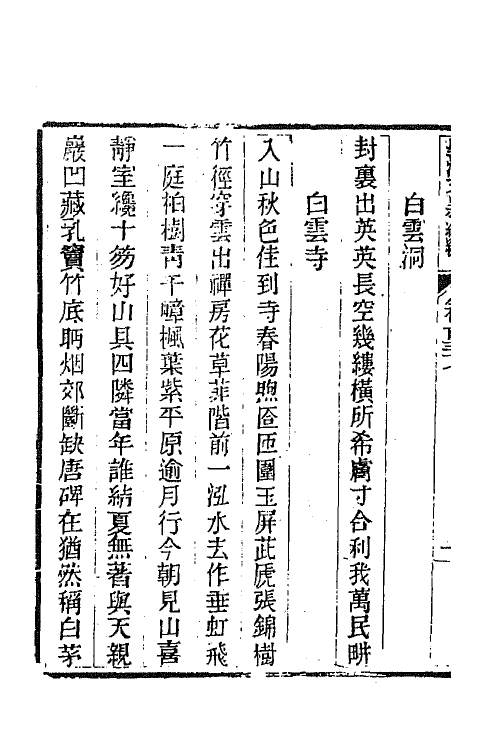 白雲洞
封裏出英英長空幾縷橫所希膚寸合利我萬民畊
白雲寺
入山秋色佳到寺春陽煦匼匝圍玉屏茈虎張錦樹
竹徑穿雲出禪房花草菲階前一泓水去作垂虹飛
一庭柏樹靑千嶂楓葉紫平原逾月行今朝見山喜
靜室纔十笏好山具四隣當年誰結夏無著與天親
巖凹藏乳竇竹底眄烟郊斷缺唐碑在猶然稱白茅